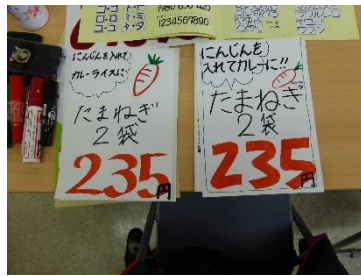 1234567890
にんじんを入れて
カレーライスに
たまねぎ
2袋
235円
にんじんも
入れてカレーに!!
たまねぎ
2袋
235円